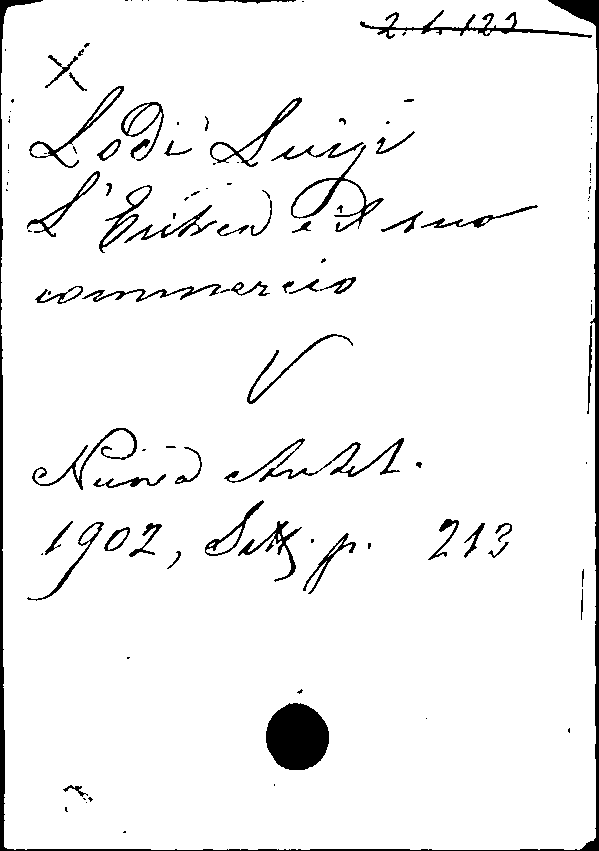 2.1.123
Lodi Luigi
L'Eritrea e il suo
commercio
V
Nuova Antol.
1902, Sett. p. 213